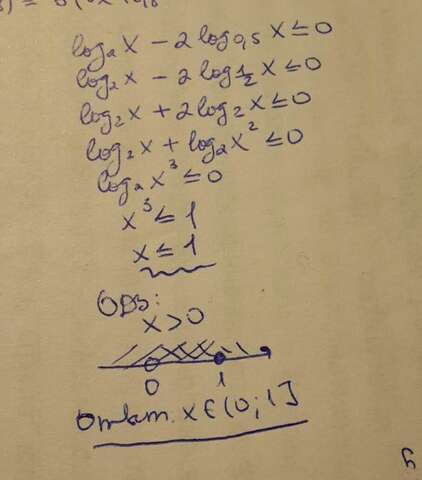 log₂x - 2log₀,₅x ≤ 0
log₂x - 2log½x ≤ 0
log₂x + 2log₂x ≤ 0
log₂x + log₂x² ≤ 0
log₂x³ ≤ 0
x³ ≤ 1
x ≤ 1
ОДЗ:
x > 0
0 1
Ответ: x ∈ (0; 1]